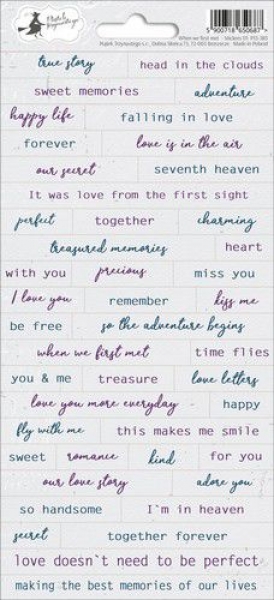 When we first met - Stickers 01 P13-385
Made in Poland
5 900718 650687
true story head in the clouds
sweet memories adventure
happy life falling in love
forever love is in the air
our secret seventh heaven
It was love from the first sight
perfect together charming
treasured memories heart
with you precious miss you
I love you remember kiss me
be free so the adventure begins
when we first met time flies
you & me treasure love letters
love you more everyday happy
fly with me this makes me smile
sweet romance kind for you
our love story adore you
so handsome I`m in heaven
secret together forever
love doesn`t need to be perfect
making the best memories of our lives